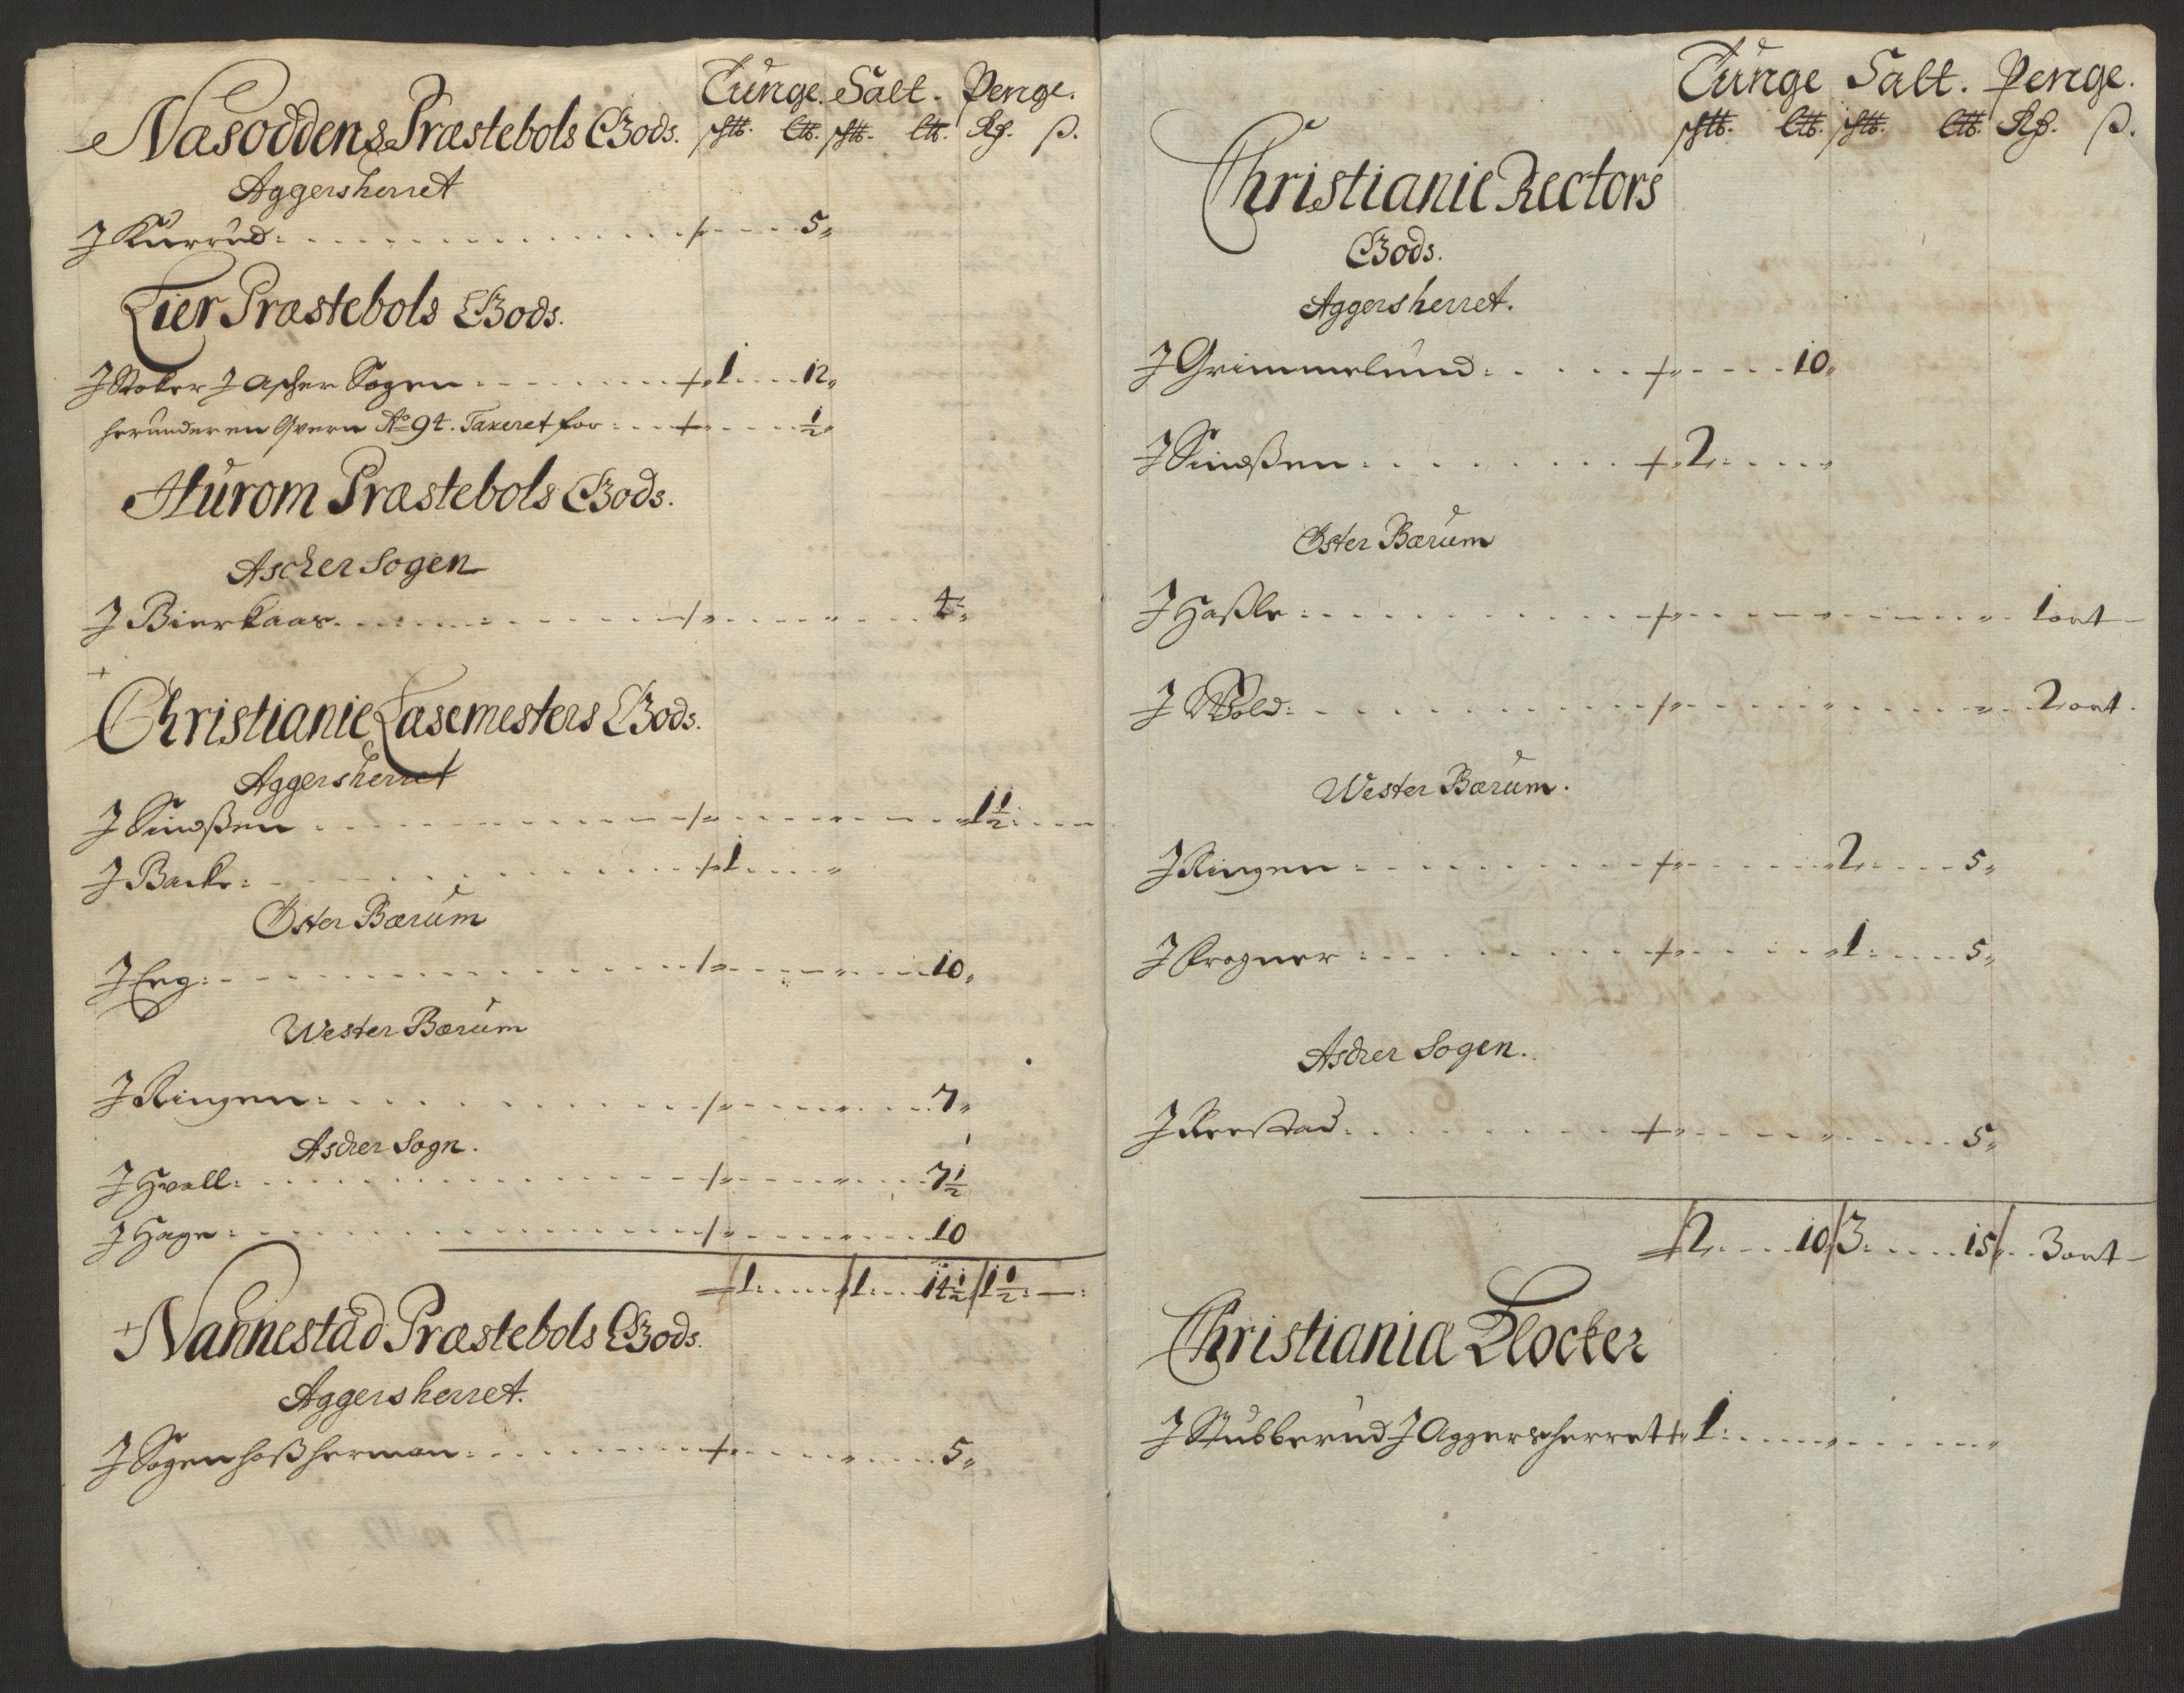 Tunge. Salt. Penge.
Næsoddens Præstebols Gods. s℔. L℔. s℔. L℔. Rd. ß.
Aggersherret
J Kurrud: 5„
Lier Præstebols Gods.
J Stoker J Ascher Sogen: 1. 12„
herunder en Qvern Ao 94. Taxeret for: ½„
Hurom Præstebols Gods.
Ascher Sogen
J Bierkaas. 4„
+
Christianie Læsemesters Gods.
Aggersherret
J Sindßen 1½:
J Backe: 1. „
Öster Bærum
J Eng: 10„
Wester Bærum
J Ringen: 7„
Ascher Sogn.
J Hvall: 7½
J Hage: 10
1: 1: 14½ 1½: —:
+ Nannestad Præstebols Gods.
Aggersherret.
J Sogenhoß herman: 5„
Tunge Salt. Penge.
s℔. L℔. s℔. L℔. Rd. ß.
Christianie Rectors
Gods.
Aggersherret.
J Grimmelund: 10„
J Sindßen: 2. „
Öster Bærum
J Haßle: 1 ort —
J Wold: 2 ort.
Wester Bærum.
J Ringen: 2. 5„
J Frogner: 1: 5„
Ascher Sogen.
J Reestad: 5„
2. 10 3: 15 3 ort —
Christiania Klocker
J Stubberud J Aggersherret 1: „